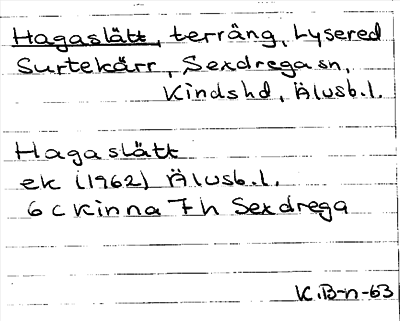 Hagaslätt, terräng, Lysered
Surtekärr, Sexdrega sn,
Kinds hd, Älvsb. l.
Hagaslätt
ek (1962) Älvsb. l.
6 c Kinna 7 h Sexdrega
K.B-n-63